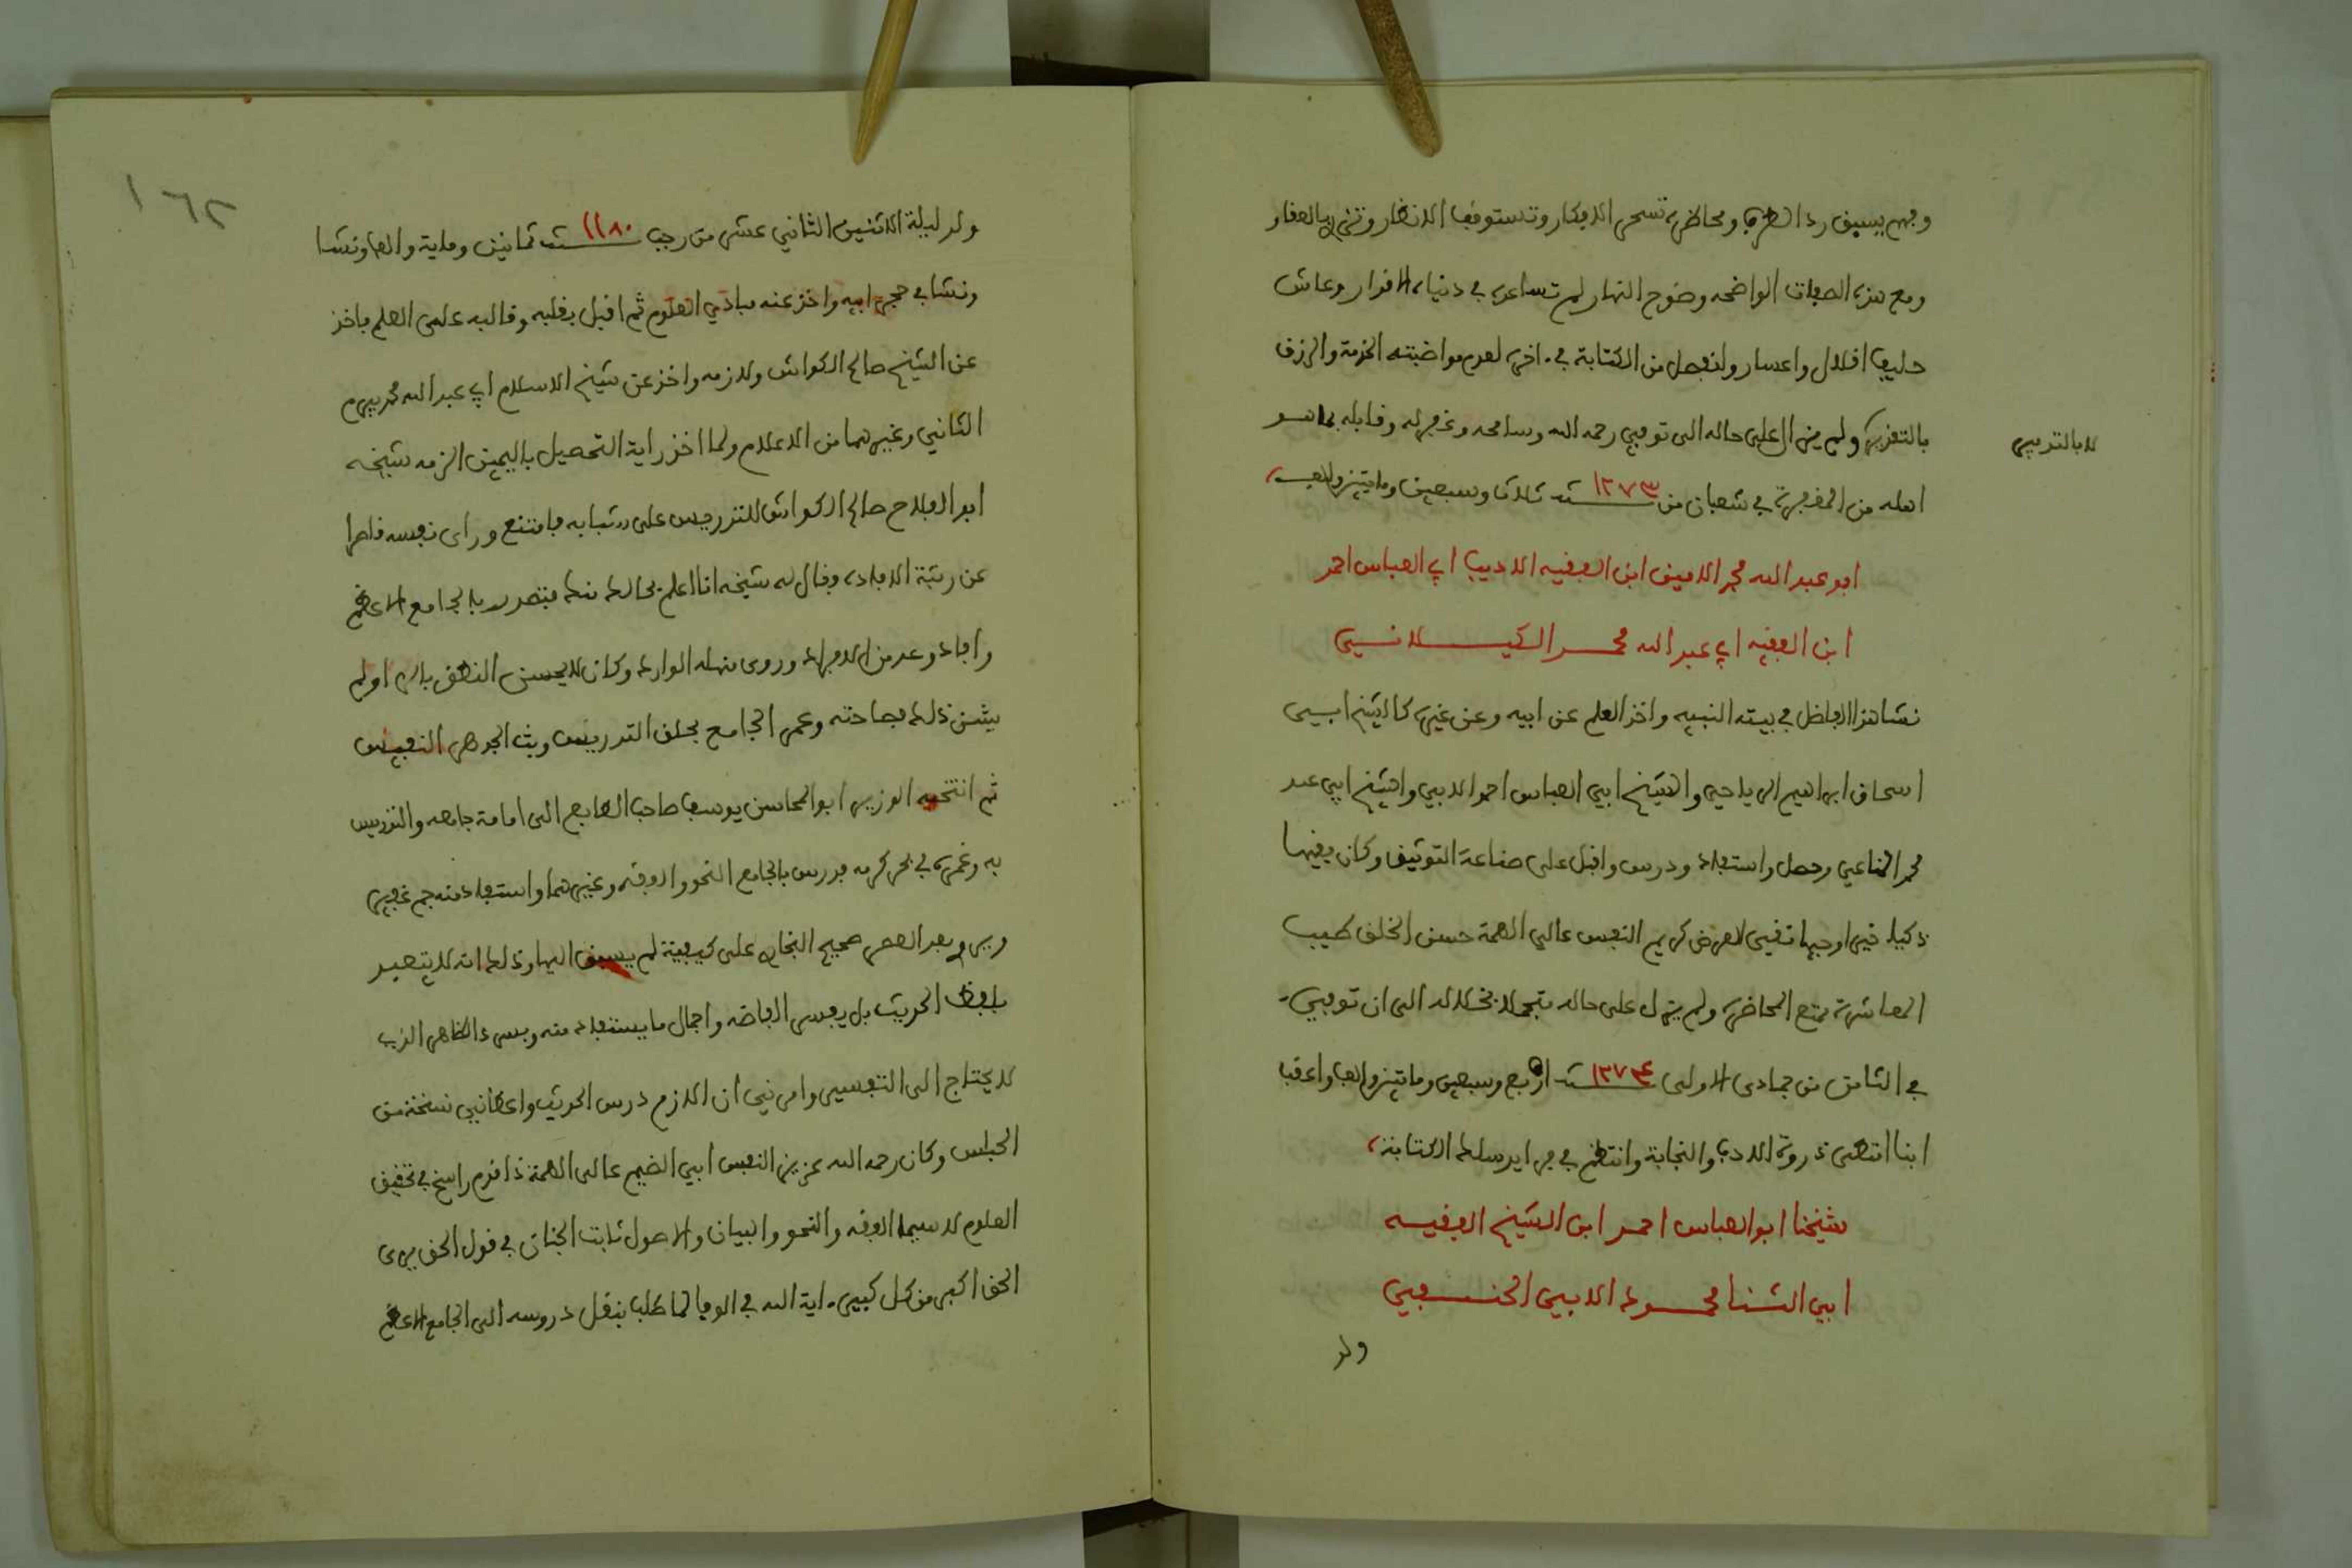 وفهم يسبق رد الطرف ومحاضرة تسحر الافكار وتستوقف الانظار وتزري بالعقار
ومع هذه الصفات الواضحه وضوح النهار لم تساعده في دنياه الاقدار وعاش
حليف اقلال واعسار وانفصل من الكتابة في اخره لعدم مواضبته الخدمة والرزق
بالتقدير ولم يزل على حاله الى توفي رحمه الله وسامحه وغفر له وقابله بما هو
لا بالتدبير
اهله من المغفرة في شعبان من سنة ١٢٧٣ ثلاث وسبعين ومايتين والف
ابو عبد الله محمد الامين ابن الفقيه الاديب ابي العباس احمد
ابن الفقيه ابي عبد الله محمد الكيلانسي
نشا هذا الفاضل في بيته النبيه واخذ العلم عن ابيه وعن غيره كالشيخ ابي
اسحاق ابراهيم الرياحي والشيخ ابي العباس احمد الابي والشيخ ابي عبد
محمد المناعي وحصل واستفاد ودرس واقبل على صناعة التوثيق وكان فقيها
ذكيا خيرا وجيها نقي العرض كريم النفس عالي الهمة حسن الخلق طيب
المعاشرة ممتع المحاضرة ولم يزل على حاله متجملا بخلاله الى ان توفي
في الثامن من جمادى الاولى سنة ١٢٧٤ اربع وسبعين ومائتين والف واعقب
ابنا انتهى ذروة الادب والنجابة وانتظم في فرايد سلك الكتابة
شيخنا ابو العباس احمد ابن الشيخ الفقيه
ابي الثنا محمود الابي الحنفي
ولد
١٦٢
ولد ليلة الاثنين الثاني عشر من رجب سنة ١١٨٠ ثمانين وماية والف ونشا
ونشا في حجر ابيه واخذ عنه مبادي العلوم ثم اقبل بقلبه وقالبه على العلم فاخذ
عن الشيخ صالح الكواش ولازمه واخذ عن شيخ الاسلام ابي عبد الله محمد بيرم
الثاني وغيرهما من الاعلام ولما اخذ راية التحصيل باليمين الزمه شيخه
ابو الفلاح صالح الكواش للتدريس على شبابه فامتنع وراى نفسه قاصرا
عن رتبة الافاده وقال له شيخه انا اعلم بحالك منك فتصدر بالجامع الاعظم
وافاد وعد من الافراد وروى منهله الوارد وكان لا يحسن النطق بالرا ولم
يشن ذلك فصاحته وعمر الجامع بحلق التدريس وبث الجوهر النفيس
ثم انتخبه الوزير ابو المحاسن يوسف صاحب الطابع الى امامة جامعه والتدريس
به وغمره في بحر كرمه فدرس بالجامع النحو والفقه وغيرهما واستفاد منه جم غفير
ويروي بعد العصر صحيح البخاري على كيفية لم يسبق اليها وذلك انه لا يتعبد
بلفظ الحديث بل يفسر الفاضه واجمال ما يستفاد منه ويسرد الظاهر الذي
لا يحتاج الى التفسير وامرني ان الازم درس الحديث واعطاني نسخة من
الحبلس وكان رحمه الله عزيز النفس ابي الضيم عالى الهمة ذا قدم راسخ في تحقيق
العلوم لا سيما الفقه والنحو والبيان والاصول ثابت الجنان في قول الحق يرى
الحق اكبر من كل كبير اية الله في الوفا لما طلب بنقل دروسه الى الجامع الاعظم